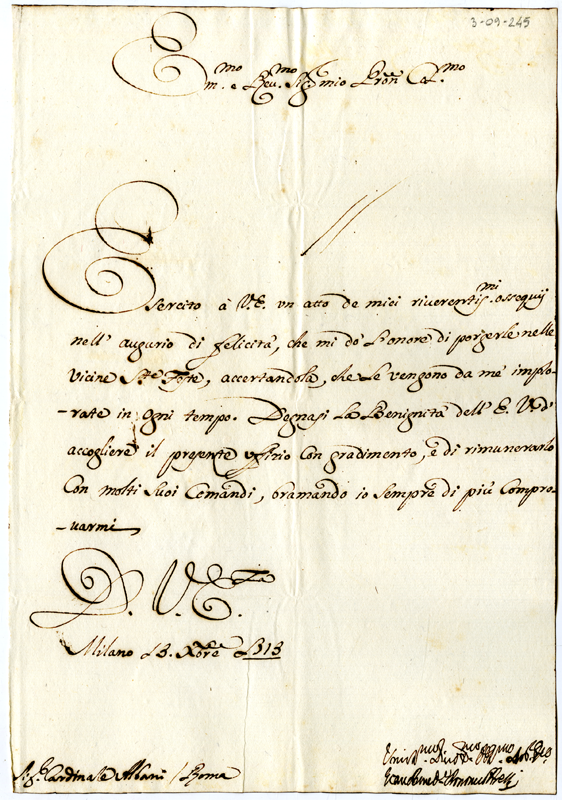 3-09-245
E.mo m. e Rev.mo Sig.r mio Pron Col.mo
Esercito à V.E. vn atto de miei riuerentis.mi ossequij
nell' augurio di felicità, che mi dò l'onore di porgerle nelle
vicine S.te Feste, accertandola, che Le vengono da mè implo-
-rate in ogni tempo. Degnasi La Benignità dell' E. V.
accogliere il presente vffizio con gradimento, e di rimunerarlo
Con molti Suoi Comandi, bramando io sempre di più Compro-
-uarmi
D. V. E.
Milano 13. Xbre 1713
Sig.r Cardinale Albani / Roma